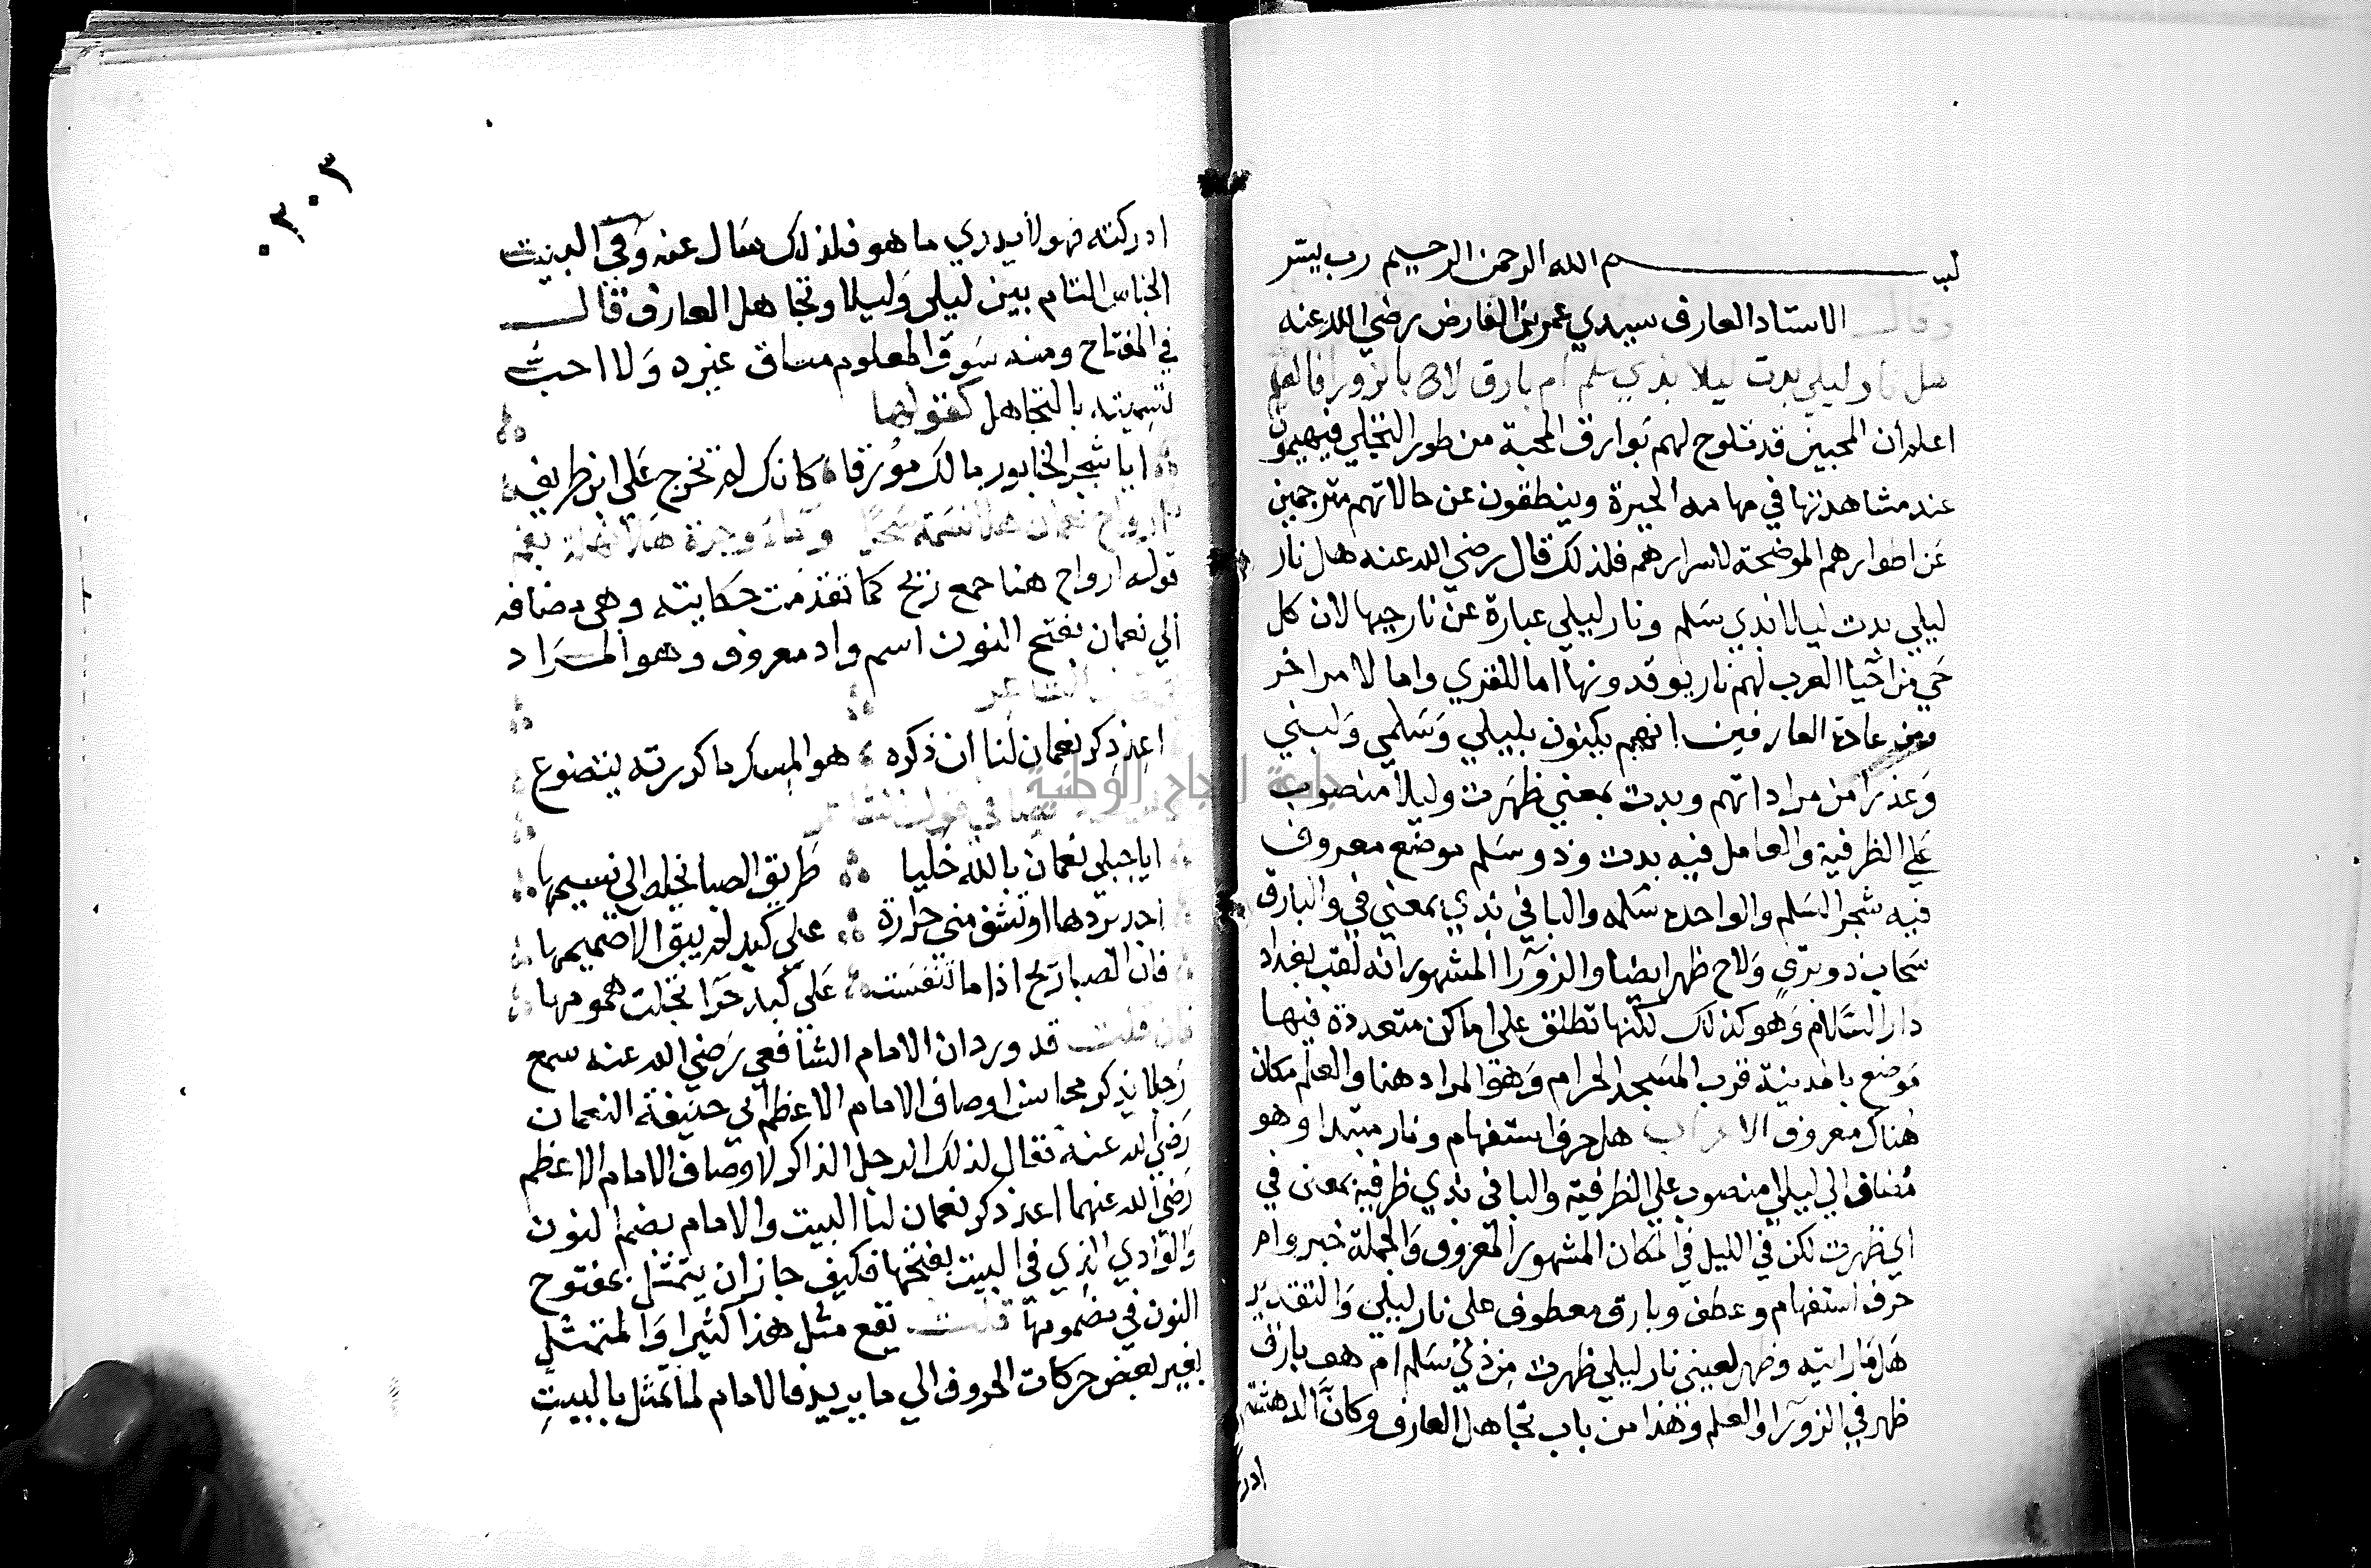 بسم الله الرحمن الرحيم رب يسر
وقال الاستاد العارف سيدي عمر بن الفارض رضي الله عنه
هل نار ليلي بدت ليلا بذي سلم ام بارق لاح بالزورا فالعلم
اعلم ان المحبين قد تلوح لهم بوارق المحبة من طور التجلي فيهيمون
عند مشاهدتها في مهامه الحيرة وينطقون عن حالاتهم مترجمين
عن اطوارهم الموضحة لاسرارهم فلذلك قال رضي الله عنه هل نار
ليلي بدت ليلا بذي سلم ونار ليلي عبارة عن نار حيها لان كل
حي من احيا العرب لهم نار يوقدونها اما للقري واما لامر اخر
ومن عادة العارفين انهم يكنون بليلي وسلمي ولبني
وعذرا من مراداتهم وبدت بمعني ظهرت وليلا منصوب
علي الظرفية والعامل فيه بدت وذو سلم موضع معروف
فيه شجر السلم والواحدة سلمه والبا في بذي بمعني في والبارق
سحاب ذو برق ولاح ظهر ايضا والزورا المشهور انه لقب بغداد
دار السلام وهو كذلك لكنها تطلق علي اماكن متعددة فيها
موضع بالمدينة قرب المسجد الحرام وهو المراد هنا والعلم مكان
هناك معروف الاعراب هل حرف استفهام ونار مبتدا وهو
مضاف الي ليلي وليلا منصوب علي الظرفية والبا في بذي ظرفية بمعني في
اي ظهرت لكن في الليل في المكان المشهور المعروف والجملة خبر وام
حرف استفهام وعطف وبارق معطوف علي نار ليلي والتقدير
هل ما رايته وظهر لعيني نار ليلي ظهرت من ذي سلم ام هو بارق
ظهر في الزورا والعلم وهذا من باب تجاهل العارف وكان الدهشة
ادر
٣٠٣
٣٠
ادركته فهو لا يدري ما هو فلذلك سال عنه وفي البيت
الجناس التام بين ليلي وليلا وتجاهل العارف قال
في المفتاح ومنه سوق المعلوم مساق غيره ولا احب
تسميته بالتجاهل كقولها
ايا شجر الخابور مالك مورقا كانك لم تخرج علي ابن طريف
ارواح نعمان هلا نسمة سحرا وماء وجرة هلا نهلة بفم
قوله ارواح هنا جمع ريح كما تقدمت حكايته وهي مضافه
الي نعمان بفتح النون اسم واد معروف وهو المراد
الشاعر
اعد ذكر نعمان لنا ان ذكره هو المسك ما كررته يتضوع
ايضا في قول الشاعر
ايا جبلي نعمان بالله خليا طريق الصبا يخلص الي نسيمها
اجد بردها او تشف مني حرارة علي كبد لم يبق الا صميمها
فان الصبا ريح اذا ما تنفست علي كبد حرا تجلت همومها
فان قلت قد ورد ان الامام الشافعي رضي الله عنه سمع
رجلا يذكر محاسن اوصاف الامام الاعظم ابي حنيفة النعمان
رضي الله عنه فقال لذلك الرجل الذاكر لاوصاف الامام الاعظم
رضي الله عنهما اعد ذكر نعمان لنا البيت والامام بضم النون
والوادي الذي في البيت بفتحها فكيف جاز ان يتمثل بمفتوح
النون في مضمومها قلت يقع مثل هذا كثيرا والمتمثل
يغير بعض حركات الحروف الي ما يريد فالامام لما تمثل بالبيت